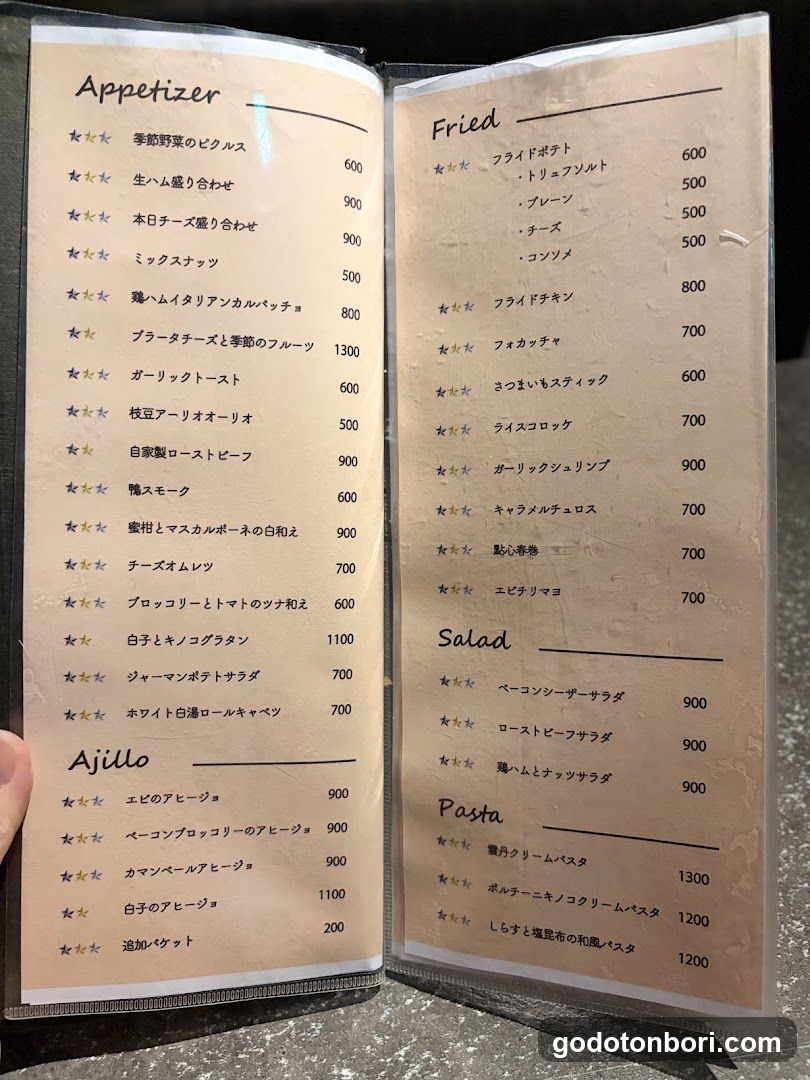 Appetizer
季節野菜のピクルス 600
生ハム盛り合わせ 900
本日チーズ盛り合わせ 900
ミックスナッツ 500
鶏ハムイタリアンカルパッチョ 800
ブラータチーズと季節のフルーツ 1300
ガーリックトースト 600
枝豆アーリオオーリオ 500
自家製ローストビーフ 900
鴨スモーク 600
蜜柑とマスカルポーネの白和え 900
チーズオムレツ 700
ブロッコリーとトマトのツナ和え 600
白子とキノコグラタン 1100
ジャーマンポテトサラダ 700
ホワイト白湯ロールキャベツ 700
Ajillo
エビのアヒージョ 900
ベーコンブロッコリーのアヒージョ 900
カマンベールアヒージョ 900
白子のアヒージョ 1100
追加バケット 200
Fried
フライドポテト
・トリュフソルト 600
・プレーン 500
・チーズ 500
・コンソメ 500
フライドチキン 800
フォカッチャ 700
さつまいもスティック 600
ライスコロッケ 700
ガーリックシュリンプ 900
キャラメルチュロス 700
點心春巻 700
エビチリマヨ 700
Salad
ベーコンシーザーサラダ 900
ローストビーフサラダ 900
鶏ハムとナッツサラダ 900
Pasta
雲丹クリームパスタ 1300
ポルチーニキノコクリームパスタ 1200
しらすと塩昆布の和風パスタ 1200
godotonbori.com